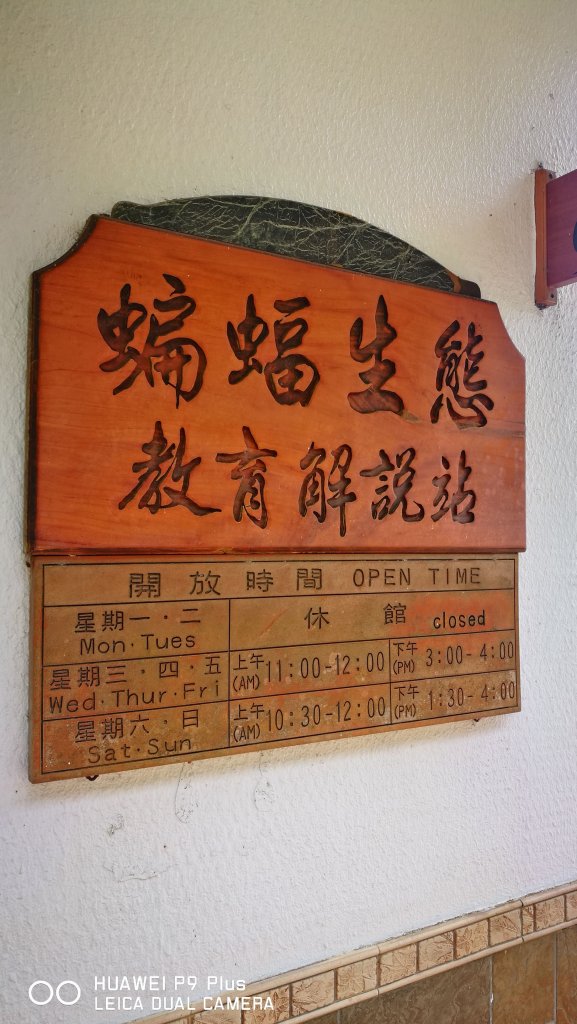 蝙蝠生態
教育解說站
開放時間 OPEN TIME
星期一·二 休館 closed
Mon·Tues
星期三·四·五 上午 11:00-12:00 下午 3:00-4:00
Wed·Thur·Fri (AM) (PM)
星期六·日 上午 10:30-12:00 下午 1:30-4:00
Sat·Sun (AM) (PM)
HUAWEI P9 Plus
LEICA DUAL CAMERA